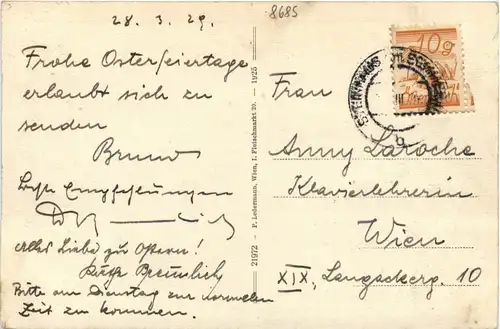 28. 3. 29.
8685
Frohe Osterfeiertage
erlaubt sich zu
senden
Bruno
Beste Empfehlungen
Alles Liebe zu Ostern!
Ruth
Bitte am Dienstag zur normalen
Zeit zu kommen.
21972 - P. Ledermann, Wien, I. Fleischmarkt 20. - 1925
10g
Frau
Anny Laroche
Klavierlehrerin
Wien
XIX, Langackerg. 10